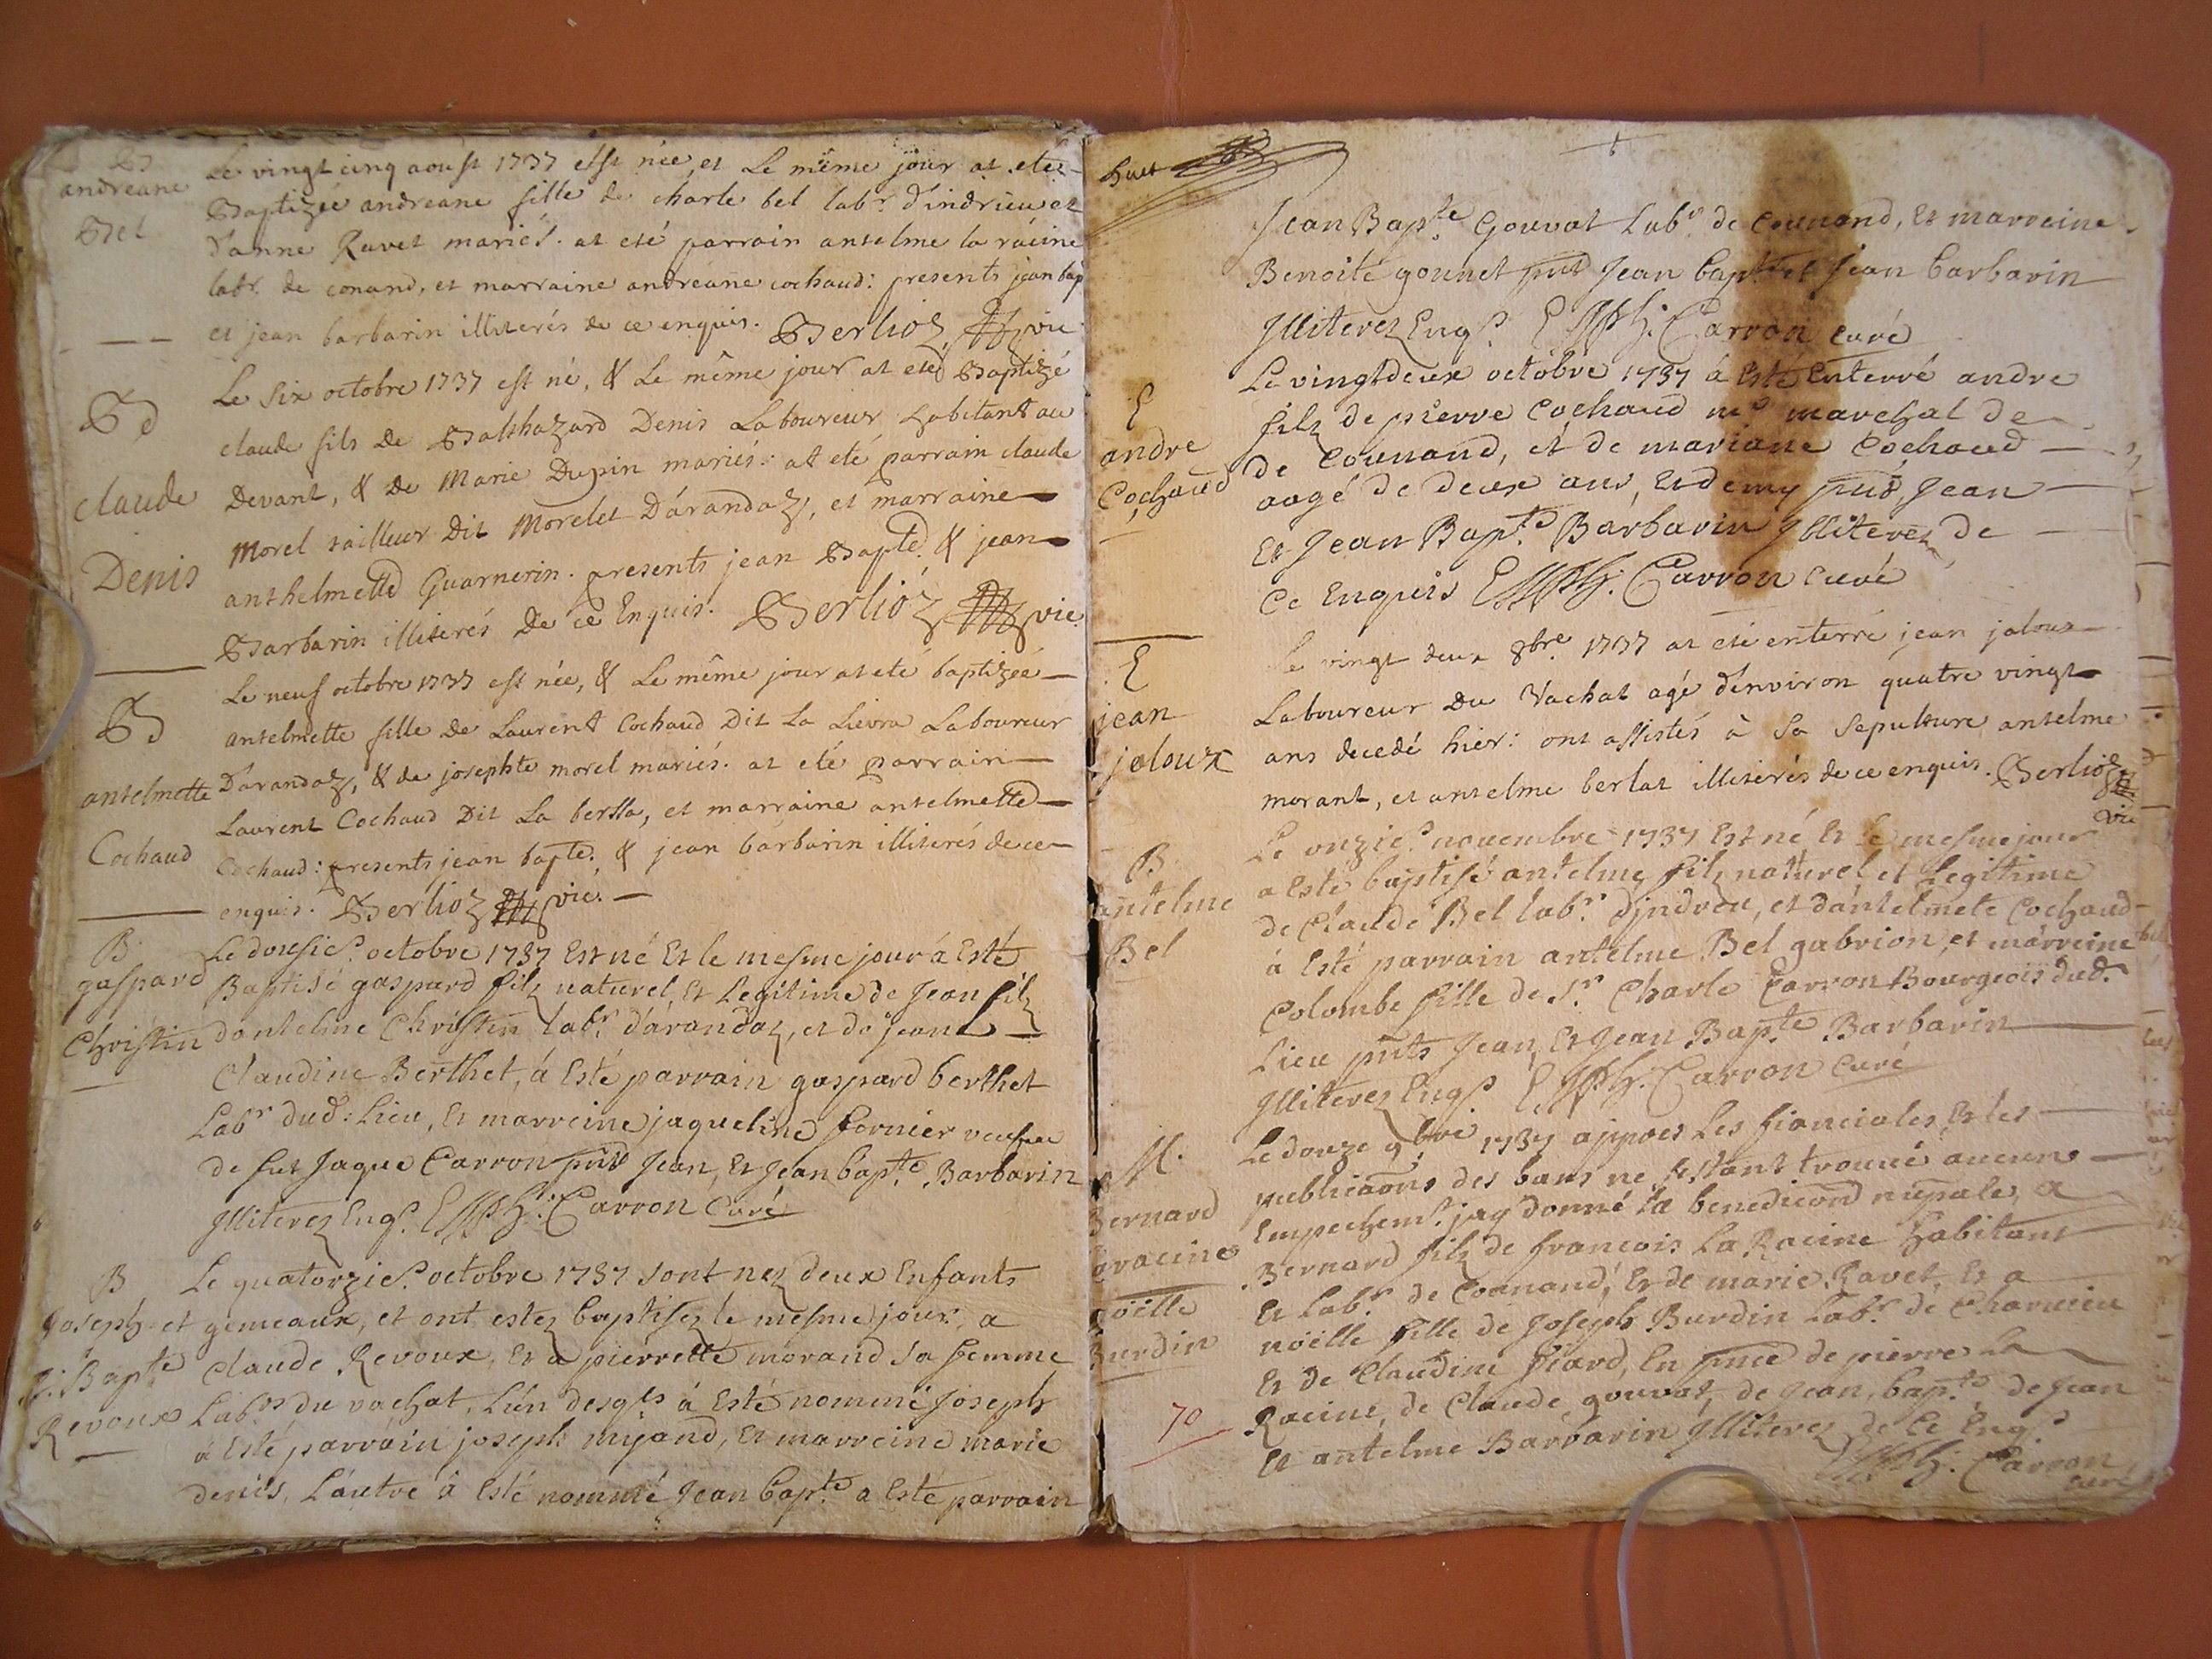 B
andreane
Bel
Le vingt cinq aoust 1737 est née, et Le même jour at eté
Baptizée andreane fille de charle bel labr. d'indrieu et
d'anne Ravet mariés. at eté parrain antelme la racine
labr. de conand, et marraine andréane cochaud: presents jean bap
et jean barbarin illiterés de ce enquis. Berlioz vic
B
claude
Denis
Le six octobre 1737 est né, & Le même jour at eté Baptizé
claude fils de Balthazard Denis Laboureur habitant au
Devant, & de Marie Dupin mariés: at eté parrain claude
Morel tailleur Dit Morelet D'arandaz, et marraine
anthelmette Guarnerin. presents jean Bapte. & jean
Barbarin illiterés De ce Enquis. Berlioz vic.
B
antelmette
Cochaud
Le neuf octobre 1737 est née, & Le même jour at eté baptizée
antelmette fille de Laurent Cochaud Dit La Lievra Laboureur
D'arandaz, & de josephte morel mariés. at eté parrain
Laurent Cochaud Dit La bersla, et marraine antelmette
Cochaud: presents jean bapte. & jean barbarin illiterés de ce
enquis. Berlioz vic.
B
gaspard
Christin
Le dousie. octobre 1737 Est né Et le mesme jour à Esté
Baptisé gaspard filz naturel, Et Legitime de Jean filz
dantelme Christin labr. d'arandaz, et de Jean
Claudine Berthet, à Esté parrain gaspard berthet
Labr dud: Lieu, Et marreine jaqueline fornier veufve
de fut Jaque Carron pnts Jean, Et Jean bapte. Barbarin
Illiterez Enqs. Carron Curé
B
Joseph et
J: Bapte
Revoux
Le quatorzie. octobre 1737 sont nez deux Enfants
gemeaux, et ont estez baptisez le mesme jour, a
Claude Revoux, Et a pierrette morand sa femme
Labrs du vachat, L'un desqls à Esté nommé Joseph
à Esté parrain joseph mijand, Et marreine marie
denis, L'autre à Esté nommé Jean bapte. a Esté parrain
huet
Jean Bapte Gouvat Labr. de Counand, Et marreine
Benoite gounet pnts Jean bapte et Jean barbarin
Illiterez Enqs. Carron curé
E
andre
Cochaud
Le vingtdeux octobre 1737 à Esté Enterré andre
filz de pierre Cochaud me marechal de
de Counand, et de mariane Cochaud
aagé de deux ans, Et demy pnts, Jean
Et Jean Bapte. Barbarin Illiterez de
Ce Enquis Carron curé
E
jean
joloux
le vingt deux 8bre. 1737 at eté enterré jean joloux
Laboureur Du Vachat agé d'environ quatre vingt
ans decedé hier: ont assistés à Sa Sepulture antelme
morant, et antelme berlat illiterés de ce enquis. Berlioz
vic
B.
antelme
Bel
Le onzie. novembre 1737 Est né Et le mesme jour
a Esté baptisé antelme filz naturel et Legitime
de Claude Bel labr. D'jndreu, et d'antelmete Cochaud
à Esté parrain antelme Bel gabrion, et marreine
Colombe fille de Sr. Charle Carron Bourgeois dud.
Lieu pnts Jean, Et Jean Bapte. Barbarin
Illiterez Enqs Carron curé
M.
Bernard
Laracine
noëlle
Burdin
Le douze 9bre 1737 appres Les fianciales, Et les
publicaons des bans ne s'estant trouué aucuns
Empechemt. jay donné la benedicond nupsale, a
Bernard filz de francois La Racine habitant
Et Labr. de Counand, Et de marie Ravet, Et a
noëlle fille de Joseph Burdin Labr. de Charncieu
Et de Claudine fiard, En pnce de pierre La
Racine, de Claude gouvat, de Jean, bapte, de Jean
Et antelme Barbarin Illiterez de Ce Enqs
Carron
curé
70